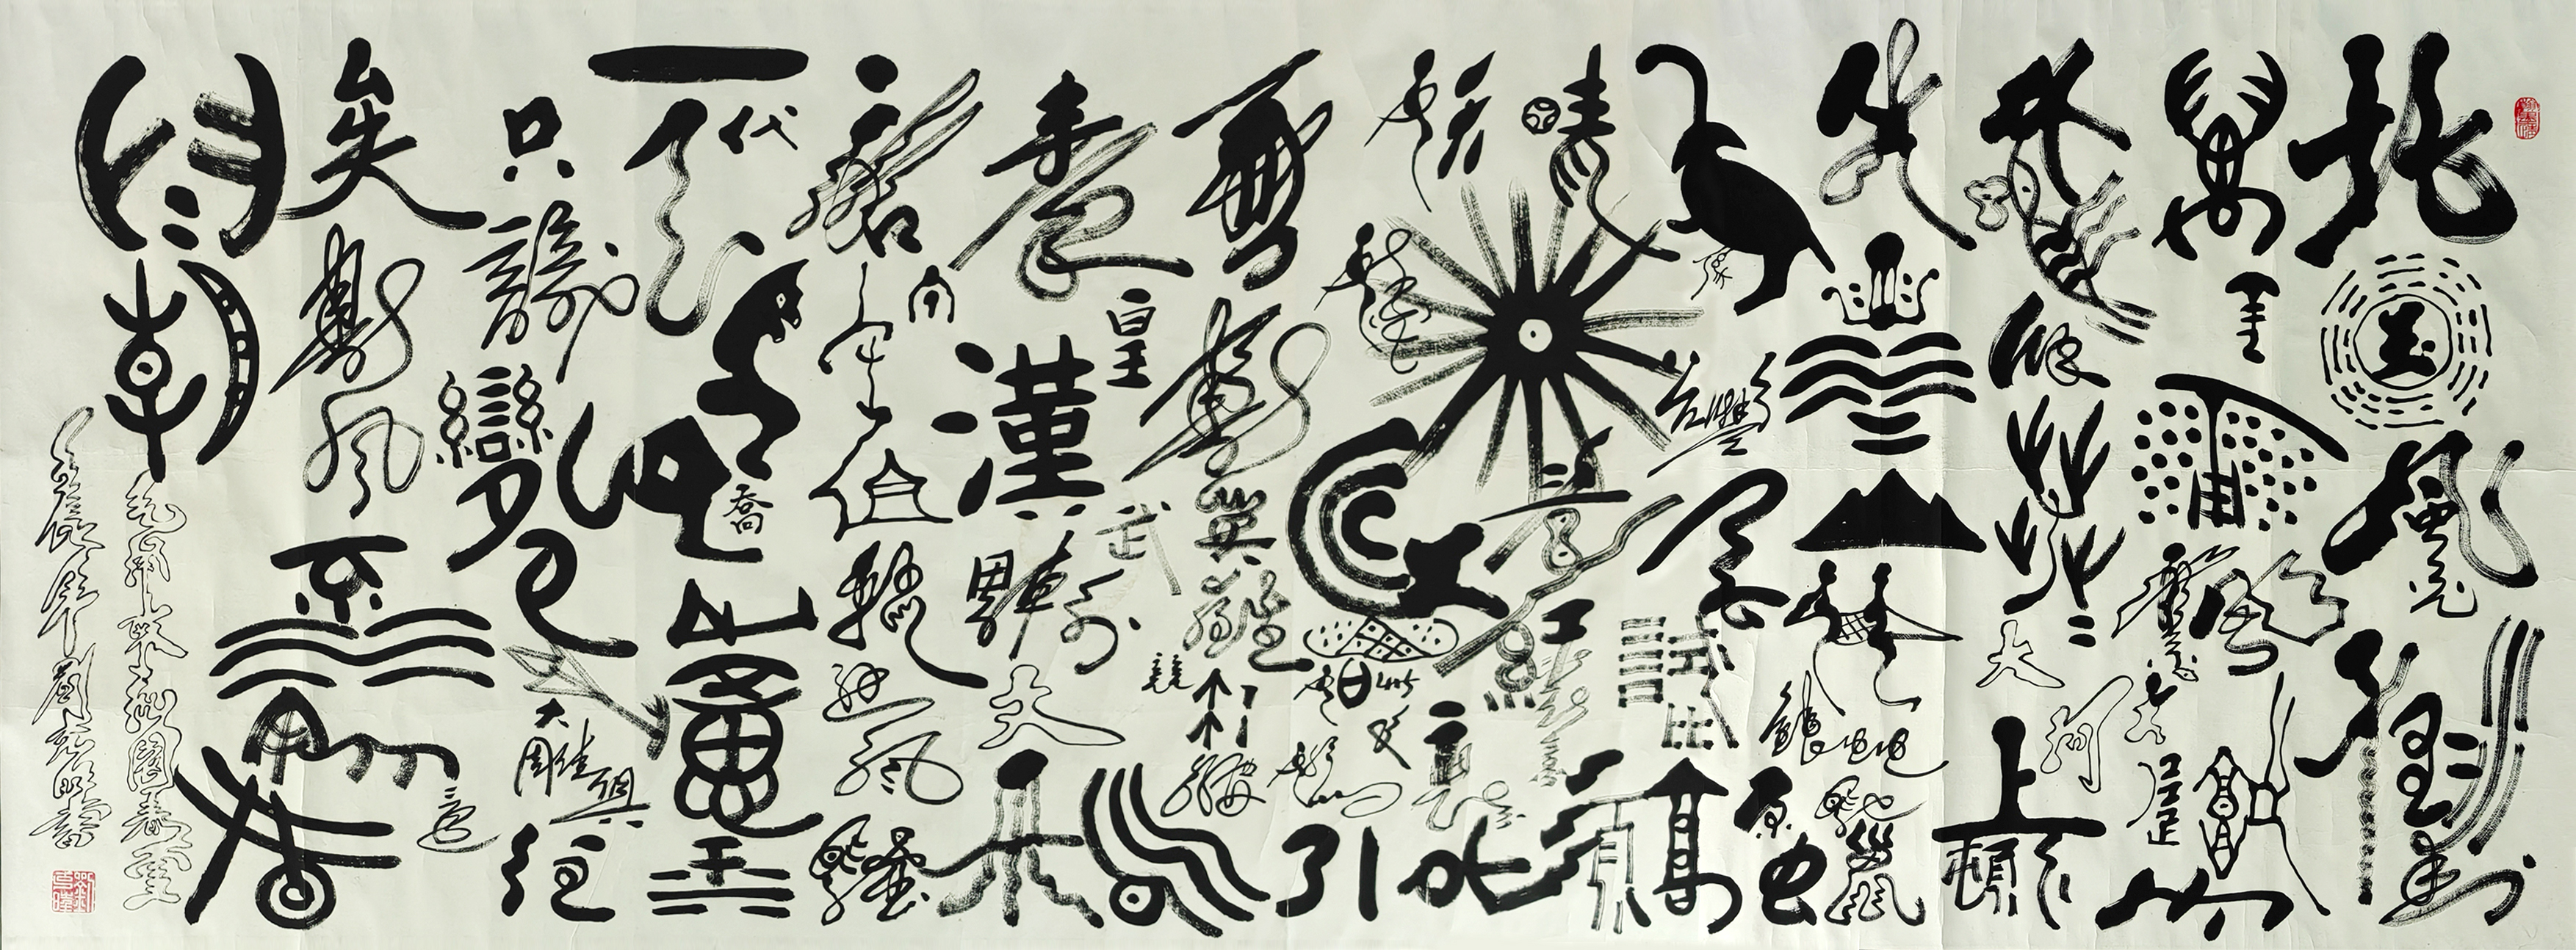 北國風光千里冰封
萬里雪飄望長城內外
惟餘莽莽大河上下頓
失滔滔山舞銀蛇原馳蠟
象欲與天公試比高須
晴日看紅裝素裹
分外妖嬈江山如此多嬌引
無數英雄競折腰惜
秦皇漢武略輸文采
唐宗宋祖稍遜風騷
一代天驕成吉思汗
只識彎弓射大雕俱往
矣數風流人物還看
今朝
毛澤東詞沁園春雪